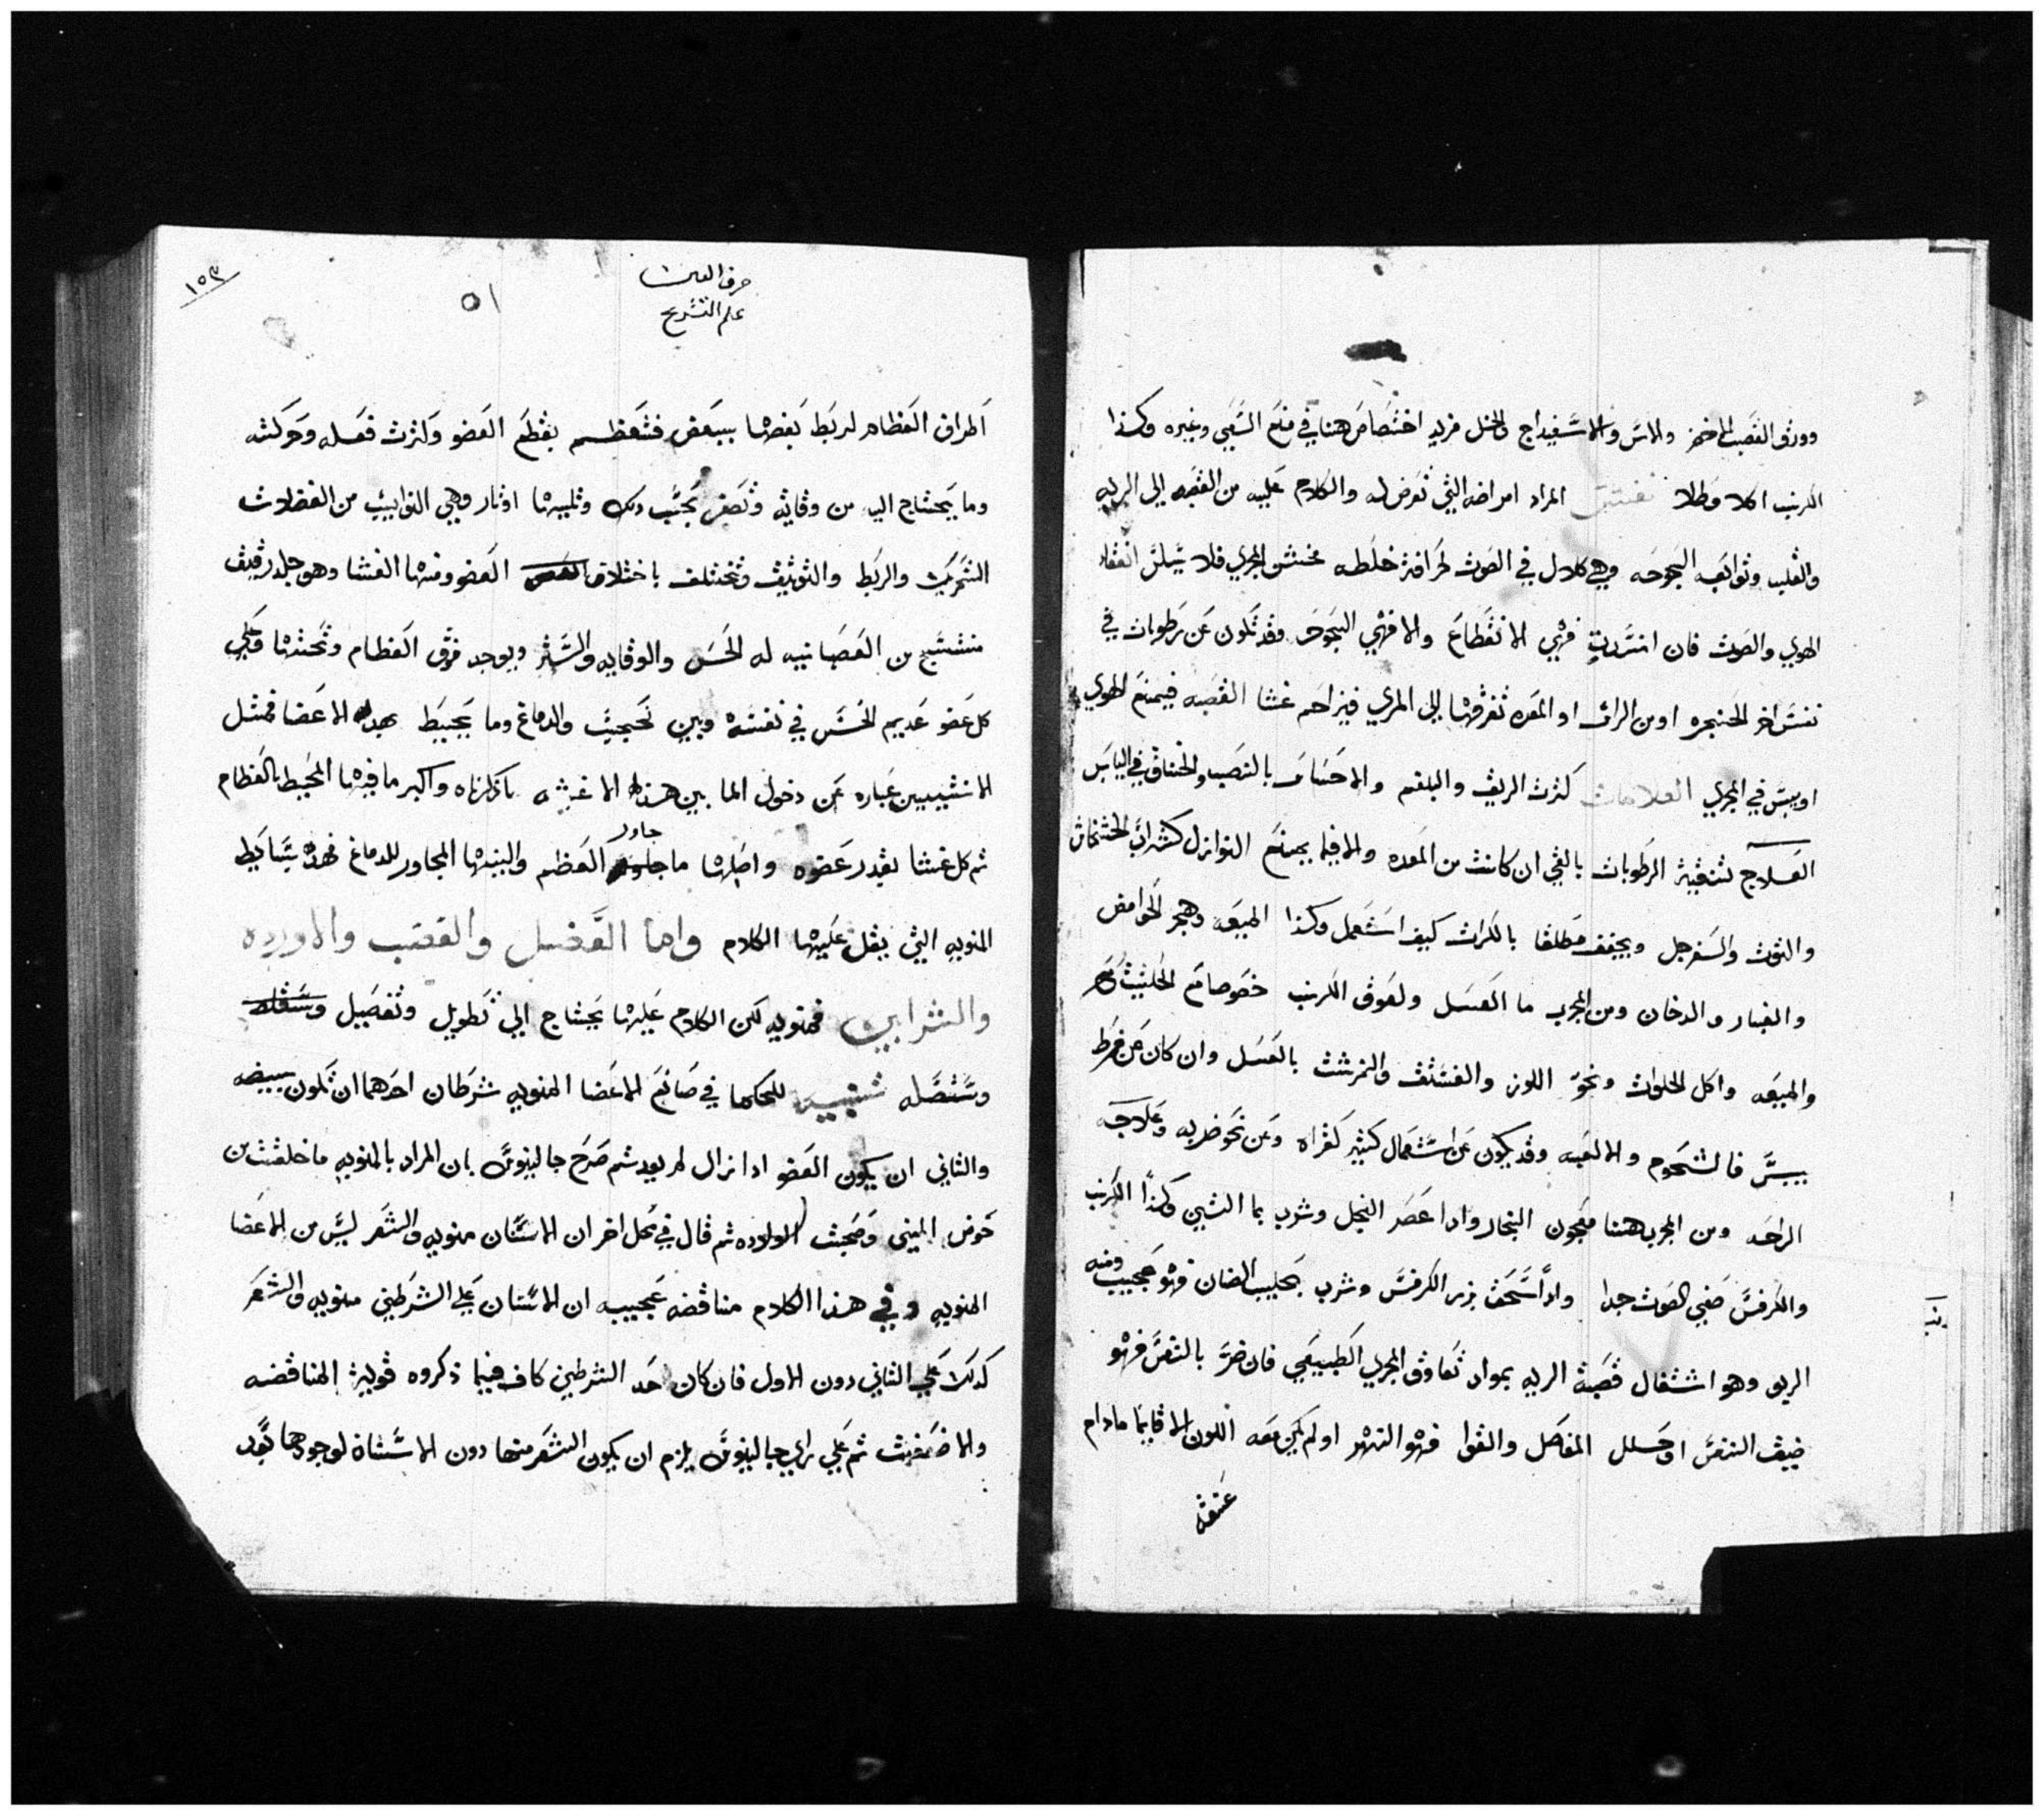 وورق القصب الاخضر والاس والاسفيداج والخل مزيد اختصاص هنا في منع السعي وغيره وكذا
الكرنب اكلا وطلا نفتتن المراد امراضه التي تعرض له والكلام عليه من القصبه الي الريه
والقلب وتوابعه البحوحه وهي كلال في الصوت لحرافة خلطه مخشن المجري فلا يسلس انعقاد
الهوي والصوت فان اشتدت فهي الانقطاع والا فهي البحوحه وقد تكون عن رطوبات في
نفس اخر الحنجره او من الراس او المعده تفرقها الي المري فيزاحم غشا القصبه فيمنع الهوي
او يبس في المجري العلامات كثرت الريق والبلغم والاحساس بالنصب والخناق في اليابس
العلاج تنقية الرطوبات بالقي ان كانت من المعده والا فبما يمنع النوازل كشراب الخشخاش
والتوت والسفرجل ويجفف مطلقا بالكراث كيف استعمل وكذا الميعه وهجر الحوامض
والغبار والدخان ومن المجرب ما العسل ولعوق الكرنب خصوصا مع الحلتيت ومع
والميعه واكل الحلوات ونحو اللوز والفستق والنمرشت بالعسل وان كان عن فرط
يبس فالشحوم والالعبه وقد يكون عن استعمال كثير كقراه وعن نحو ضربه وعلاجه
الراحه ومن المجرب هنا معجون النجار وادا عصر الفجل وشرب بما التين وكذا الكرنب
والكرفس صفي الصوت جدا وادا سحق بزر الكرفس وشرب بحليب الضان فهو عجيب ومنه
الربو وهو اشتغال قصبة الريه بمواد تعاوق المجري الطبيعي فان خص بالنفس فهو
ضيق النفس او حلل المفاصل والقوا فهو البهر او لم يكن معه اللون الا قايما مادام
عنقه
حرف العين
علم التشريح
٥١
١٥٣
اطراف العظام لربط بعضها ببعض فتعظم بعظم العضو وكثرت فعله وحركته
وما يحتاج اليه من وقايه وتصغر بحسب دلك وتليها اوتار وهي النوابت من العضلات
التحريك والربط والتوثيق وتختلف باختلاف العضو ومنها الغشا وهو جلد رقيق
منتسج من العصبانيه له الحس والوقايه والستر ويوجد فوق العظام وتحتها وعلي
كل عضو عديم الحس في نفسه وبين تججيب والدماغ وما يحيط بهده الاعضا فمثل
الانثيين عباره عن دخول الما بين هذه الاغشيه ماذكرناه واكبر ما فيها المحيط بالعظام
ثم كل غشا بقدر عضوه واصلبها ما جاور العظم والينها المجاور للدماغ فهده بسايط
المنويه التي يقل عليها الكلام واما العضل والقصب والاورده
والشرايين فمنويه لكن الكلام عليها يحتاج الي تطويل وتفصيل وستقله
وستصله تنبيه للحكما في صانع الاعضا المنويه شرطان احدهما ان تكون بيضه
والثاني ان يكون العضو ادا زال لم يعد ثم صرح جالينوس بان المراد بالمنويه ما خلقت من
خوض المني وصحبت الولاده ثم قال في محل اخر ان الاسنان منويه والشعر ليس من الاعضا
المنويه وفي هذا الكلام مناقضه عجيبه ان الاسنان علي الشرطين منويه والشعر
كدلك علي الثاني دون الاول فان كان احد الشرطين كاف فيما ذكروه قويت المناقضه
والا ضعفت ثم علي راي جالينوس يلزم ان يكون الشعر منها دون الاسنان لوجودها بعد